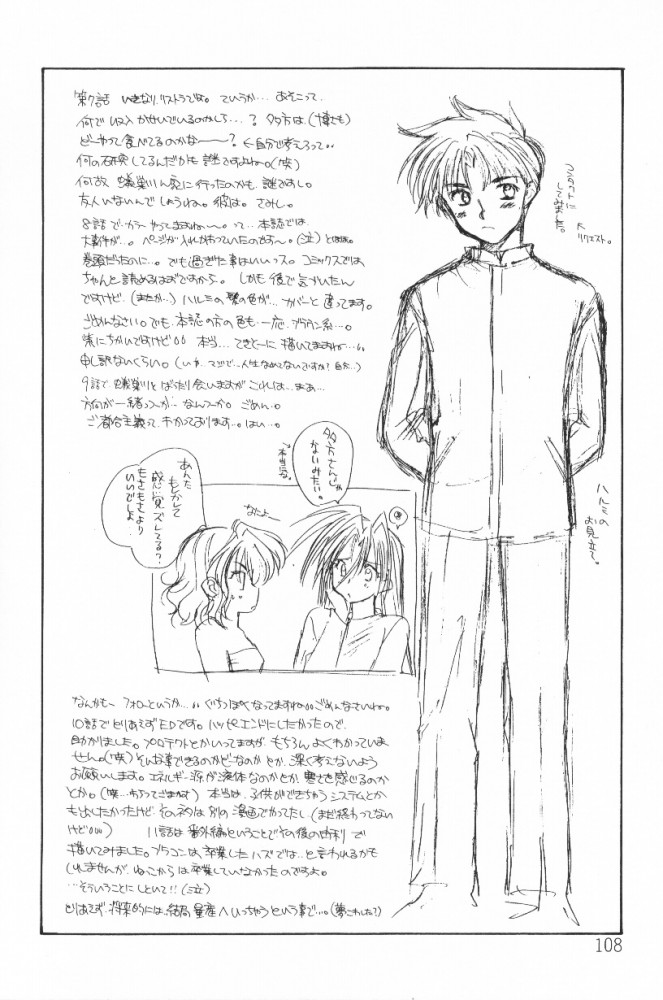 第7話 いきなりリストラですよ。ていうか… あそこって、
何で収入かせいでいるのかしら…? 多方は、(博士も)
どーやって食べてるのかなーーー? ←自分で考えろって…
何の研究してるんだかも謎ですよねー。(笑)
何故 蟻巣川ん宛に行ったのかも、謎ですし。
友人いないんでしょうね。彼は。さみし。
8話でカラーやってますねー。って…本誌では、
大事件が…。ページが入れかわっていたのです〜。(泣)とほほ。
巻頭だったのに…。でも過ぎた事はいいっス。コミックスでは
ちゃんと読めるはずですから。 しかも後で気がついたん
ですけど、(またか…)ハルミの髪の色が… カバーと違ってます。
ごめんなさい。でも、本誌の方の色も一応、ブラウン系…。
紫にちかいですけど 本当…てきとーに描いてますねー…
申し訳ないくらい。(いや、マジで…人生なめてないですか?自分…)
9話で 蟻巣川とばったり会いますが これは…まあ…
方向が一緒っつーか… なんつーか。 ごめん。
ご都合主義って、わかっております…。はい…。
フツーのコトに
してみた。
↖
リクエスト。
ハルミの
お見立て。
多方さんじゃ
ないみたい。
↑本当な。
なによー
あんた
もしかして
感覚ズレてる?
もさもさより
いいでしょ…
なんかもー フォローというか… ぐちっぽくなってますねー ごめんなさいねー。
10話でとりあえずEDです。ハッピーエンドにしたかったので、
助かりました。プロテクトとかいってますが、もちろんよくわかっていま
せん。(笑)そんな事できるのかどーなのか とか、深く考えないよう
お願いします。エネルギー源が液体なのかとか、寒さを感じるのか
とか。(笑…ちょってごまかす) 本当は、子供ができちゃうシステムとか
も出したかったけど、そのネタは別の漫画でかってたし、(まだ終わってない
けど) 11話は番外編ということでその後の2人で
描いてみました。ブラコンは、卒業したハズでは…と言われるかも
しれませんが、ねこからは卒業していなかったのですよ。
…そういうことにしといて!!(泣)
とりあえず、将来的には、結局 量産へいっちゃうという事で…。(夢こわした?)
108